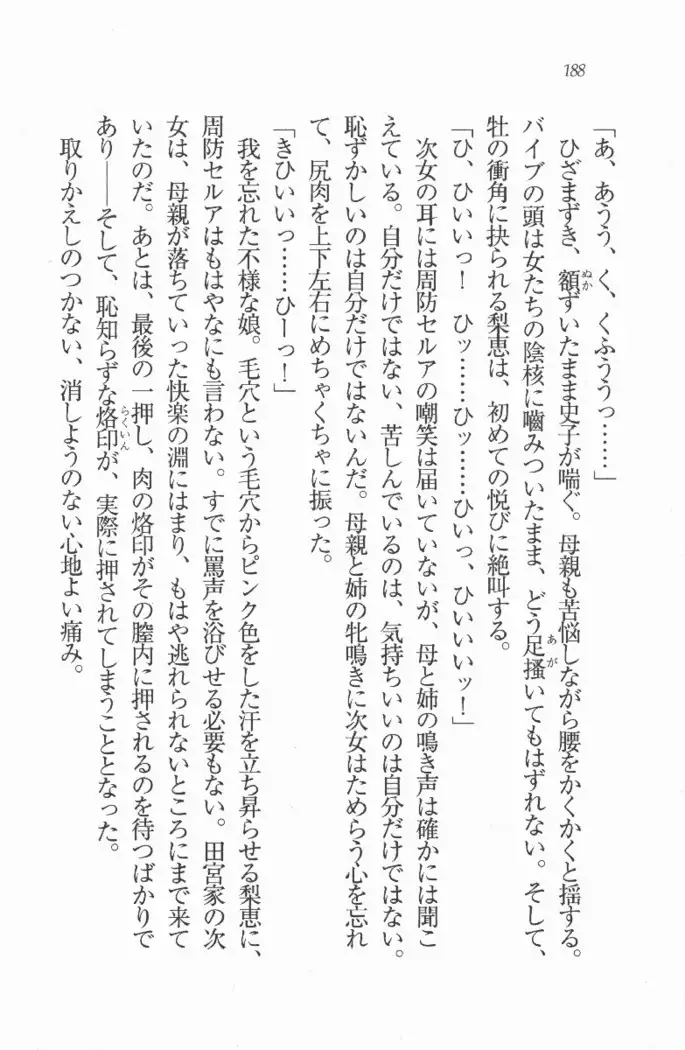 188
「あ、あうう、く、くふううっ……」
ひざまずき、額ずいたまま史子が喘ぐ。母親も苦悩しながら腰をかくかくと揺する。
バイブの頭は女たちの陰核に嚙みついたまま、どう足搔いてもはずれない。そして、
牡の衝角に抉られる梨恵は、初めての悦びに絶叫する。
「ひ、ひいいっ！　ひッ……ひッ……ひいっ、ひいいいッ！」
次女の耳には周防セルアの嘲笑は届いていないが、母と姉の鳴き声は確かには聞こ
えている。自分だけではない、苦しんでいるのは、気持ちいいのは自分だけではない。
恥ずかしいのは自分だけではないんだ。母親と姉の牝鳴きに次女はためらう心を忘れ
て、尻肉を上下左右にめちゃくちゃに振った。
「きひいいっ……ひーっ！」
我を忘れた不様な娘。毛穴という毛穴からピンク色をした汗を立ち昇らせる梨恵に、
周防セルアはもはやなにも言わない。すでに罵声を浴びせる必要もない。田宮家の次
女は、母親が落ちていった快楽の淵にはまり、もはや逃れられないところにまで来て
いたのだ。あとは、最後の一押し、肉の烙印がその膣内に押されるのを待つばかりで
あり――そして、恥知らずな烙印が、実際に押されてしまうこととなった。
取りかえしのつかない、消しようのない心地よい痛み。